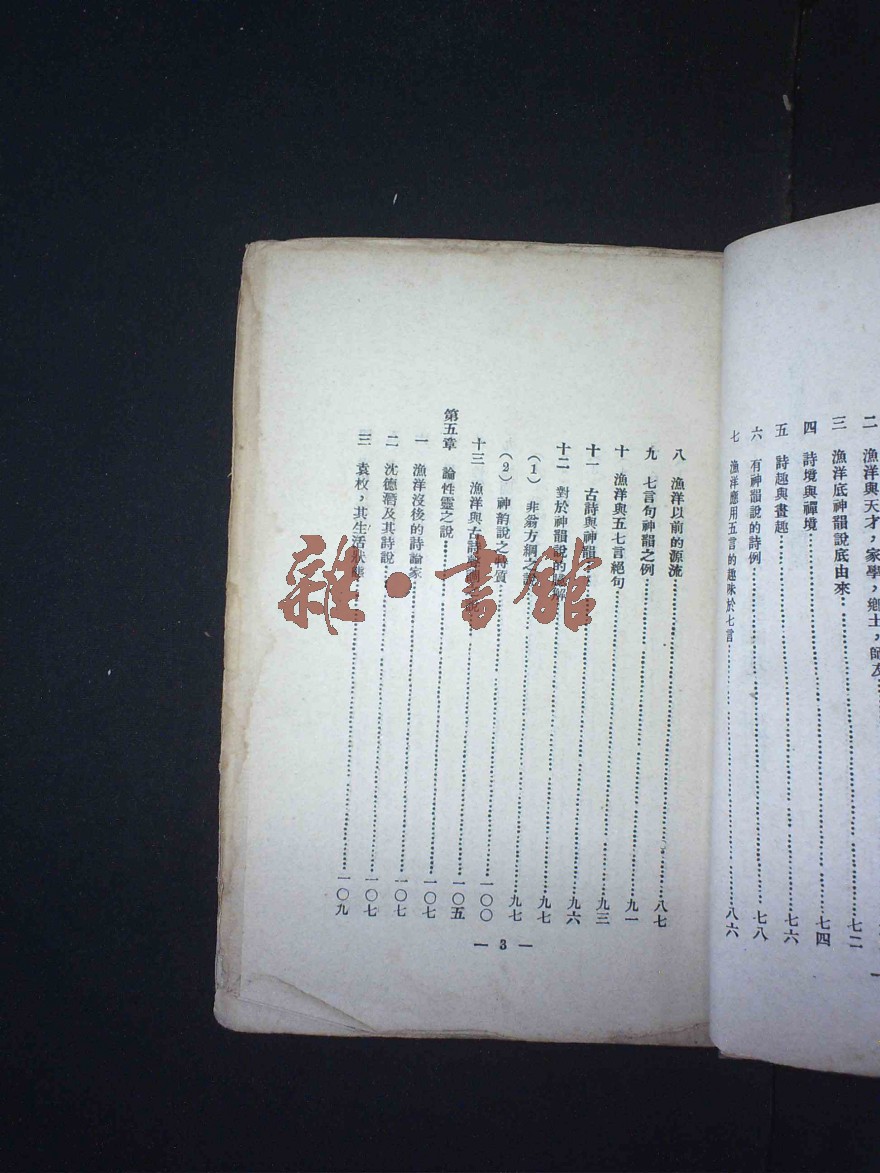 二 漁洋與天才，家學，鄉土，師友
三 漁洋底神韻說底由來……七二
四 詩境與禪境……七四
五 詩趣與畫趣……七六
六 有神韻說的詩例……七八
七 漁洋應用五言的趣味於七言……八六
八 漁洋以前的源流……八七
九 七言句神韻之例……九一
十 漁洋與五七言絕句……九三
十一 古詩與神韻……九六
十二 對於神韻說的誤解……九七
（1） 非翁方綱之說……九七
（2） 神韵說之特質……一〇〇
十三 漁洋與古詩聲調……一〇五
第五章 論性靈之說……一〇七
一 漁洋沒後的詩論家……一〇七
二 沈德潛及其詩說……一〇七
三 袁枚，其生活狀態……一〇九
— 3 —
雜·書館